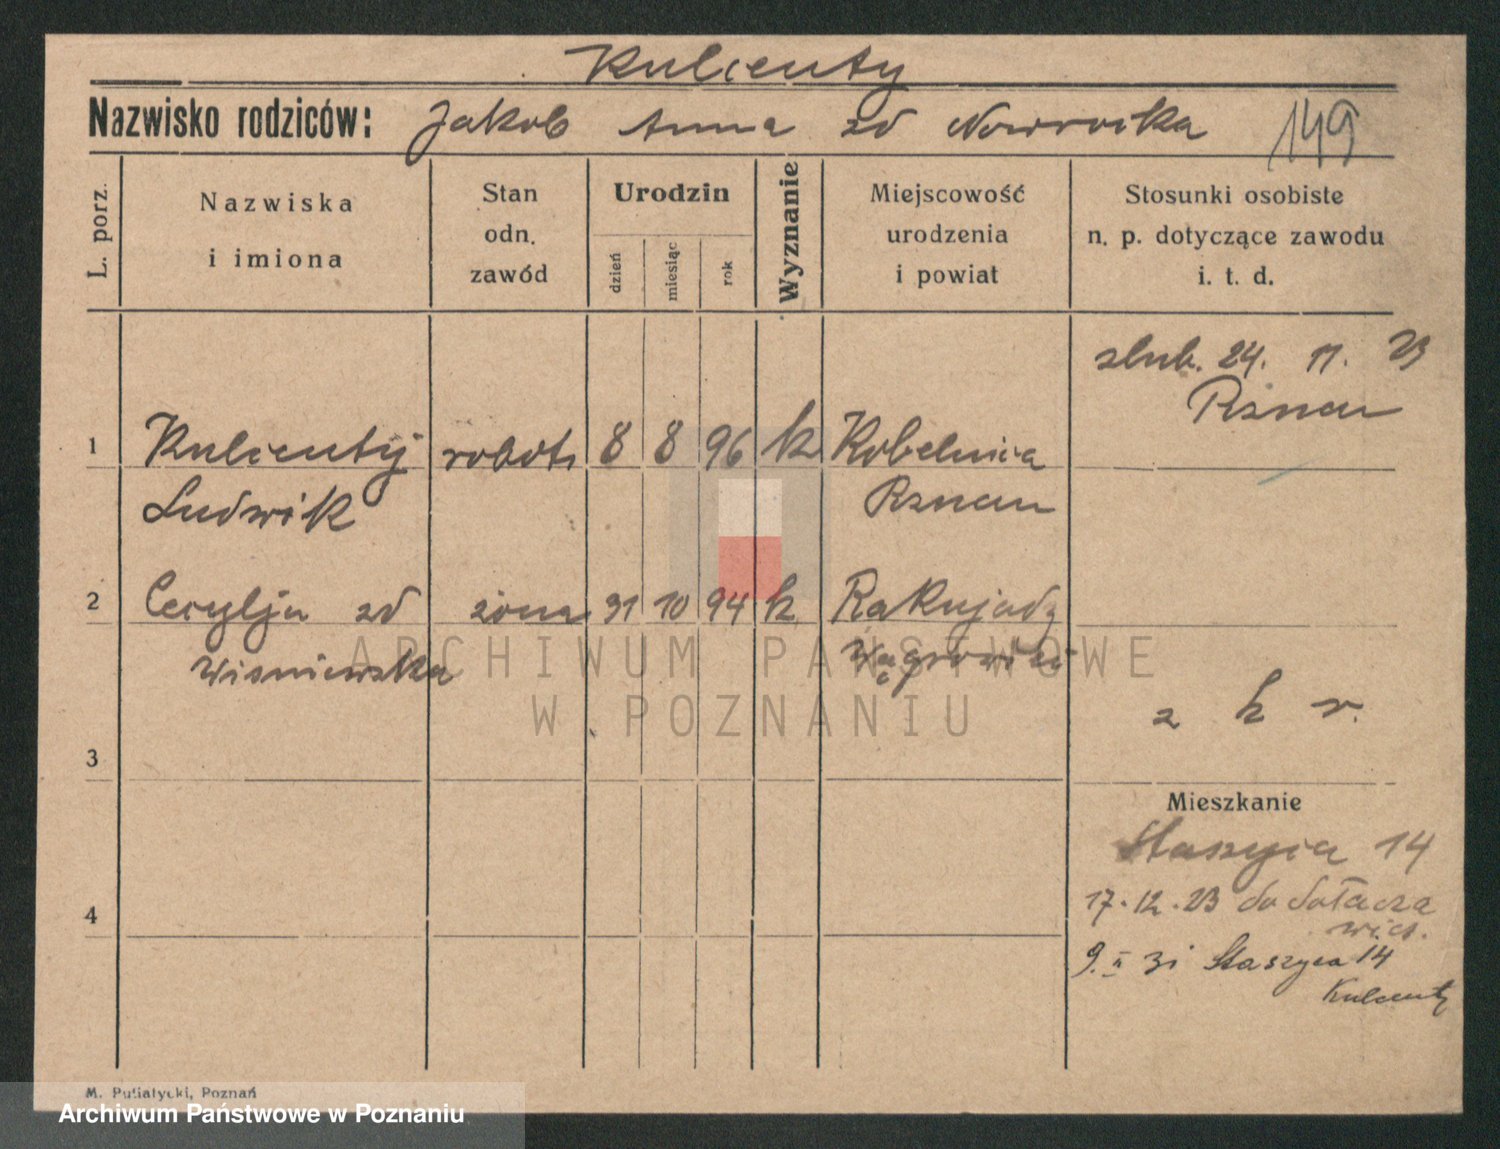 Kulcenty
Nazwisko rodziców: Jakob Anna zd Nowrocka 149
L. porz.
Nazwiska i imiona
Stan odn. zawód
Urodzin
dzień miesiąc rok
Wyznanie
Miejscowość urodzenia i powiat
Stosunki osobiste n. p. dotyczące zawodu i. t. d.
slub. 24. 11. 23
Pznan
1 Kulcenty robotn 8 8 96 k Kobelnica
Ludwik Pznan
2 Cecylja zd żona 31 10 94 k Rakujady
Wisniewska Wągrowiec
z k r.
3
Mieszkanie
Staszyca 14
17.12.23 do Sołacza
4
9. II 31 Staszyca 14
Kulcenty
M. Putiatycki, Poznań
ARCHIWUM PAŃSTWOWE
W POZNANIU
Archiwum Państwowe w Poznaniu